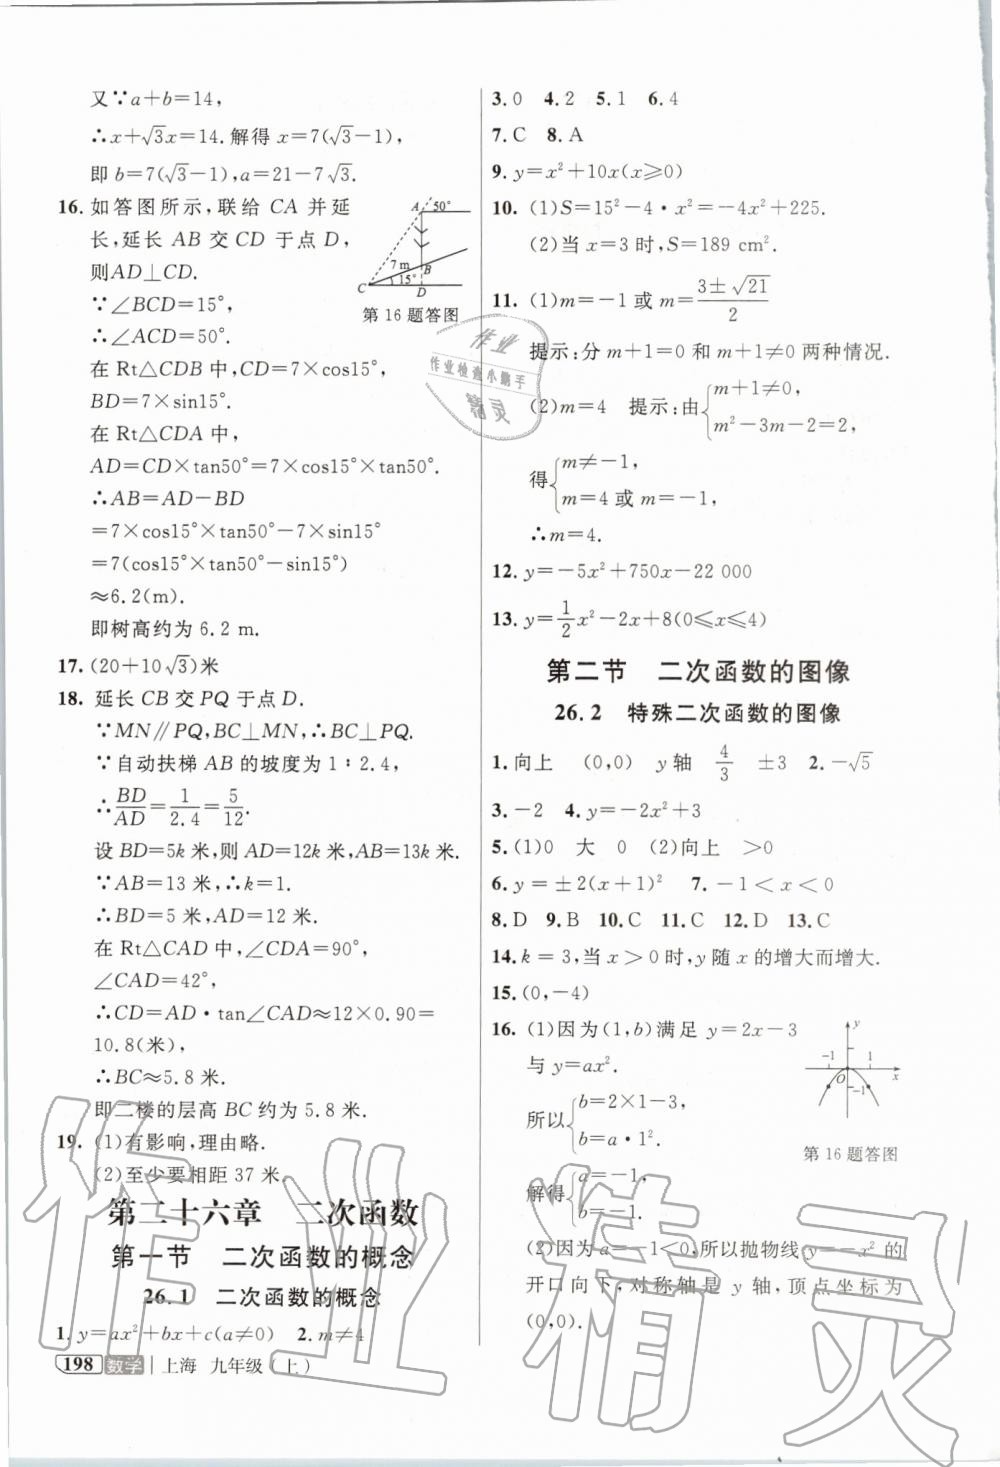 又∵a+b=14,
∴x+√3x=14.解得 x=7(√3-1),
即 b=7(√3-1),a=21-7√3.
16. 如答图所示,联给 CA 并延
长,延长 AB 交 CD 于点 D,
则AD⊥CD.
∵∠BCD=15°,
∴∠ACD=50°.
在 Rt△CDB 中,CD=7×cos15°,
BD=7×sin15°.
在 Rt△CDA 中,
AD=CD×tan50°=7×cos15°×tan50°.
∴AB=AD-BD
=7×cos15°×tan50°-7×sin15°
=7(cos15°×tan50°-sin15°)
≈6.2(m).
即树高约为 6.2 m.
A 50°
7 m
B
C 15°
D
第 16 题答图
17. (20+10√3)米
18. 延长 CB 交 PQ 于点 D.
∵MN∥PQ,BC⊥MN,∴BC⊥PQ.
∵自动扶梯 AB 的坡度为 1∶2.4,
∴BD/AD=1/2.4=5/12.
设 BD=5k 米,则 AD=12k 米,AB=13k 米.
∵AB=13 米,∴k=1.
∴BD=5 米,AD=12 米.
在 Rt△CAD 中,∠CDA=90°,
∠CAD=42°,
∴CD=AD·tan∠CAD≈12×0.90=
10.8(米),
∴BC≈5.8 米.
即二楼的层高 BC 约为 5.8 米.
19. (1)有影响,理由略.
(2)至少要相距 37 米.
第二十六章 二次函数
第一节 二次函数的概念
26.1 二次函数的概念
1. y=ax²+bx+c(a≠0) 2. m≠4
198 数学 上海 九年级(上)
3. 0 4. 2 5. 1 6. 4
7. C 8. A
9. y=x²+10x(x≥0)
10. (1)S=15²-4·x²=-4x²+225.
(2)当 x=3 时,S=189 cm².
11. (1)m=-1 或 m=(3±√21)/2
提示:分 m+1=0 和 m+1≠0 两种情况.
(2)m=4 提示:由{m+1≠0,
m²-3m-2=2,
得{m≠-1,
m=4 或 m=-1,
∴m=4.
12. y=-5x²+750x-22 000
13. y=1/2x²-2x+8(0≤x≤4)
第二节 二次函数的图像
26.2 特殊二次函数的图像
1. 向上 (0,0) y 轴 4/3 ±3 2. -√5
3. -2 4. y=-2x²+3
5. (1)0 大 0 (2)向上 >0
6. y=±2(x+1)² 7. -1<x<0
8. D 9. B 10. C 11. C 12. D 13. C
14. k=3,当 x>0 时,y 随 x 的增大而增大.
15. (0,-4)
16. (1)因为(1,b)满足 y=2x-3
与 y=ax².
所以{b=2×1-3,
b=a·1².
解得{a=-1,
b=-1.
y
-1 1
O x
-1
第 16 题答图
(2)因为a=-1<0,所以抛物线 y=-x² 的
开口向下,对称轴是 y 轴,顶点坐标为
(0,0).
作业
作业检查小助手
精灵
作业精灵